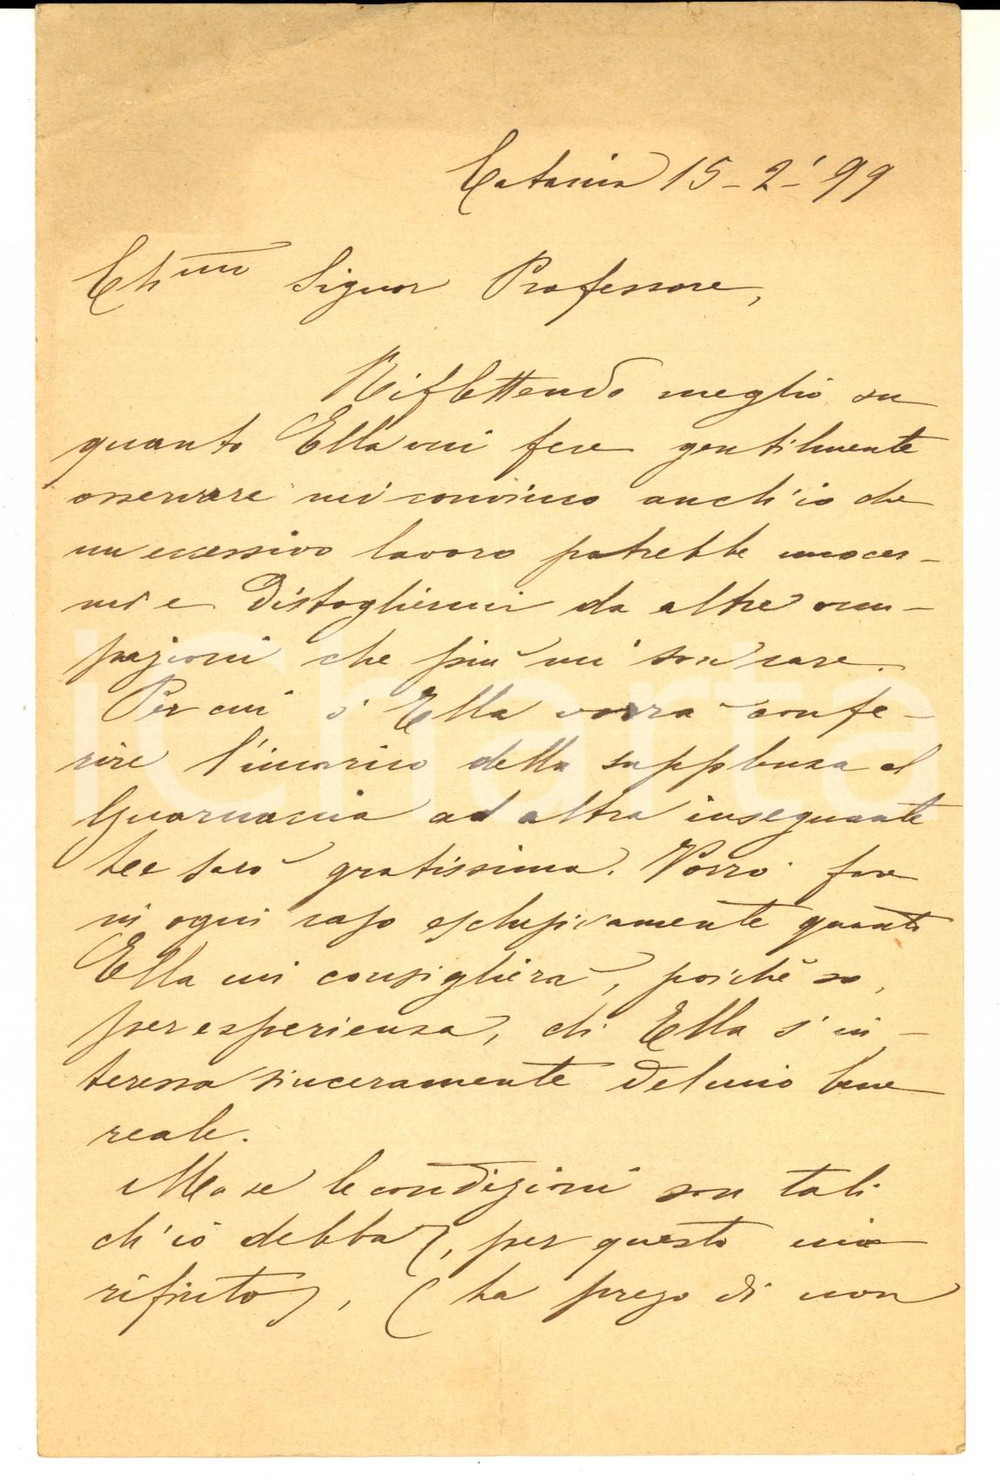 Catania 15-2-'99
Ch.mo Signor Professore,
Riflettendo meglio su
quanto Ella mi fece gentilmente
osservare mi convinco anch'io che
un eccessivo lavoro potrebbe nuocer-
mi e distogliermi da altre occu-
pazioni che più mi son care.
Per cui s'Ella vorrà confe-
rire l'incarico della supplenza al
Guarnaccia ad altra insegnante
Le sarò gratissima. Vorrò fare
in ogni caso esclusivamente quanto
Ella mi consiglierà, poichè so,
per esperienza, ch'Ella s'in-
teressa sinceramente del mio bene
reale.
Ma se le condizioni son tali
ch'io debba, per questo mio
rifiuto, (La prego di non
iCharta